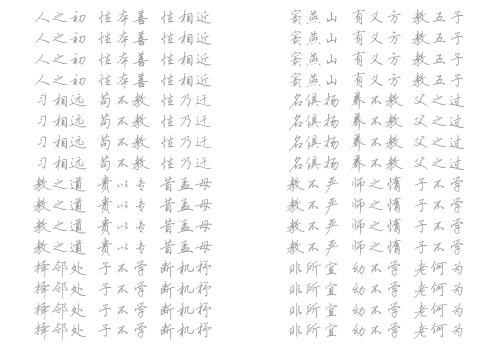 人之初 性本善 性相近
人之初 性本善 性相近
人之初 性本善 性相近
人之初 性本善 性相近
习相远 苟不教 性乃迁
习相远 苟不教 性乃迁
习相远 苟不教 性乃迁
习相远 苟不教 性乃迁
教之道 贵以专 昔孟母
教之道 贵以专 昔孟母
教之道 贵以专 昔孟母
教之道 贵以专 昔孟母
择邻处 子不学 断机杼
择邻处 子不学 断机杼
择邻处 子不学 断机杼
择邻处 子不学 断机杼
窦燕山 有义方 教五子
窦燕山 有义方 教五子
窦燕山 有义方 教五子
窦燕山 有义方 教五子
名俱扬 养不教 父之过
名俱扬 养不教 父之过
名俱扬 养不教 父之过
名俱扬 养不教 父之过
教不严 师之惰 子不学
教不严 师之惰 子不学
教不严 师之惰 子不学
教不严 师之惰 子不学
非所宜 幼不学 老何为
非所宜 幼不学 老何为
非所宜 幼不学 老何为
非所宜 幼不学 老何为